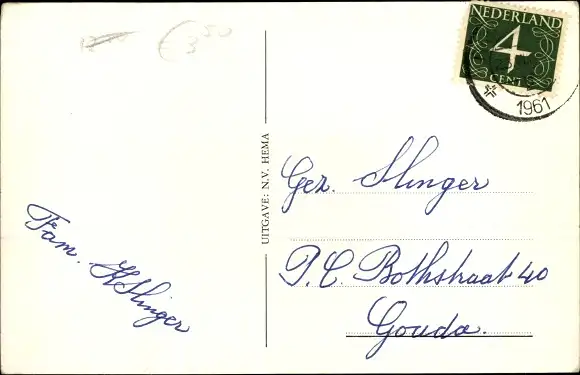 € 3,50
NEDERLAND
4
CENT
1961
UITGAVE: N.V. HEMA
Gez. Slinger
P.C. Bothstraat 40
Gouda.
Fam. Slinger